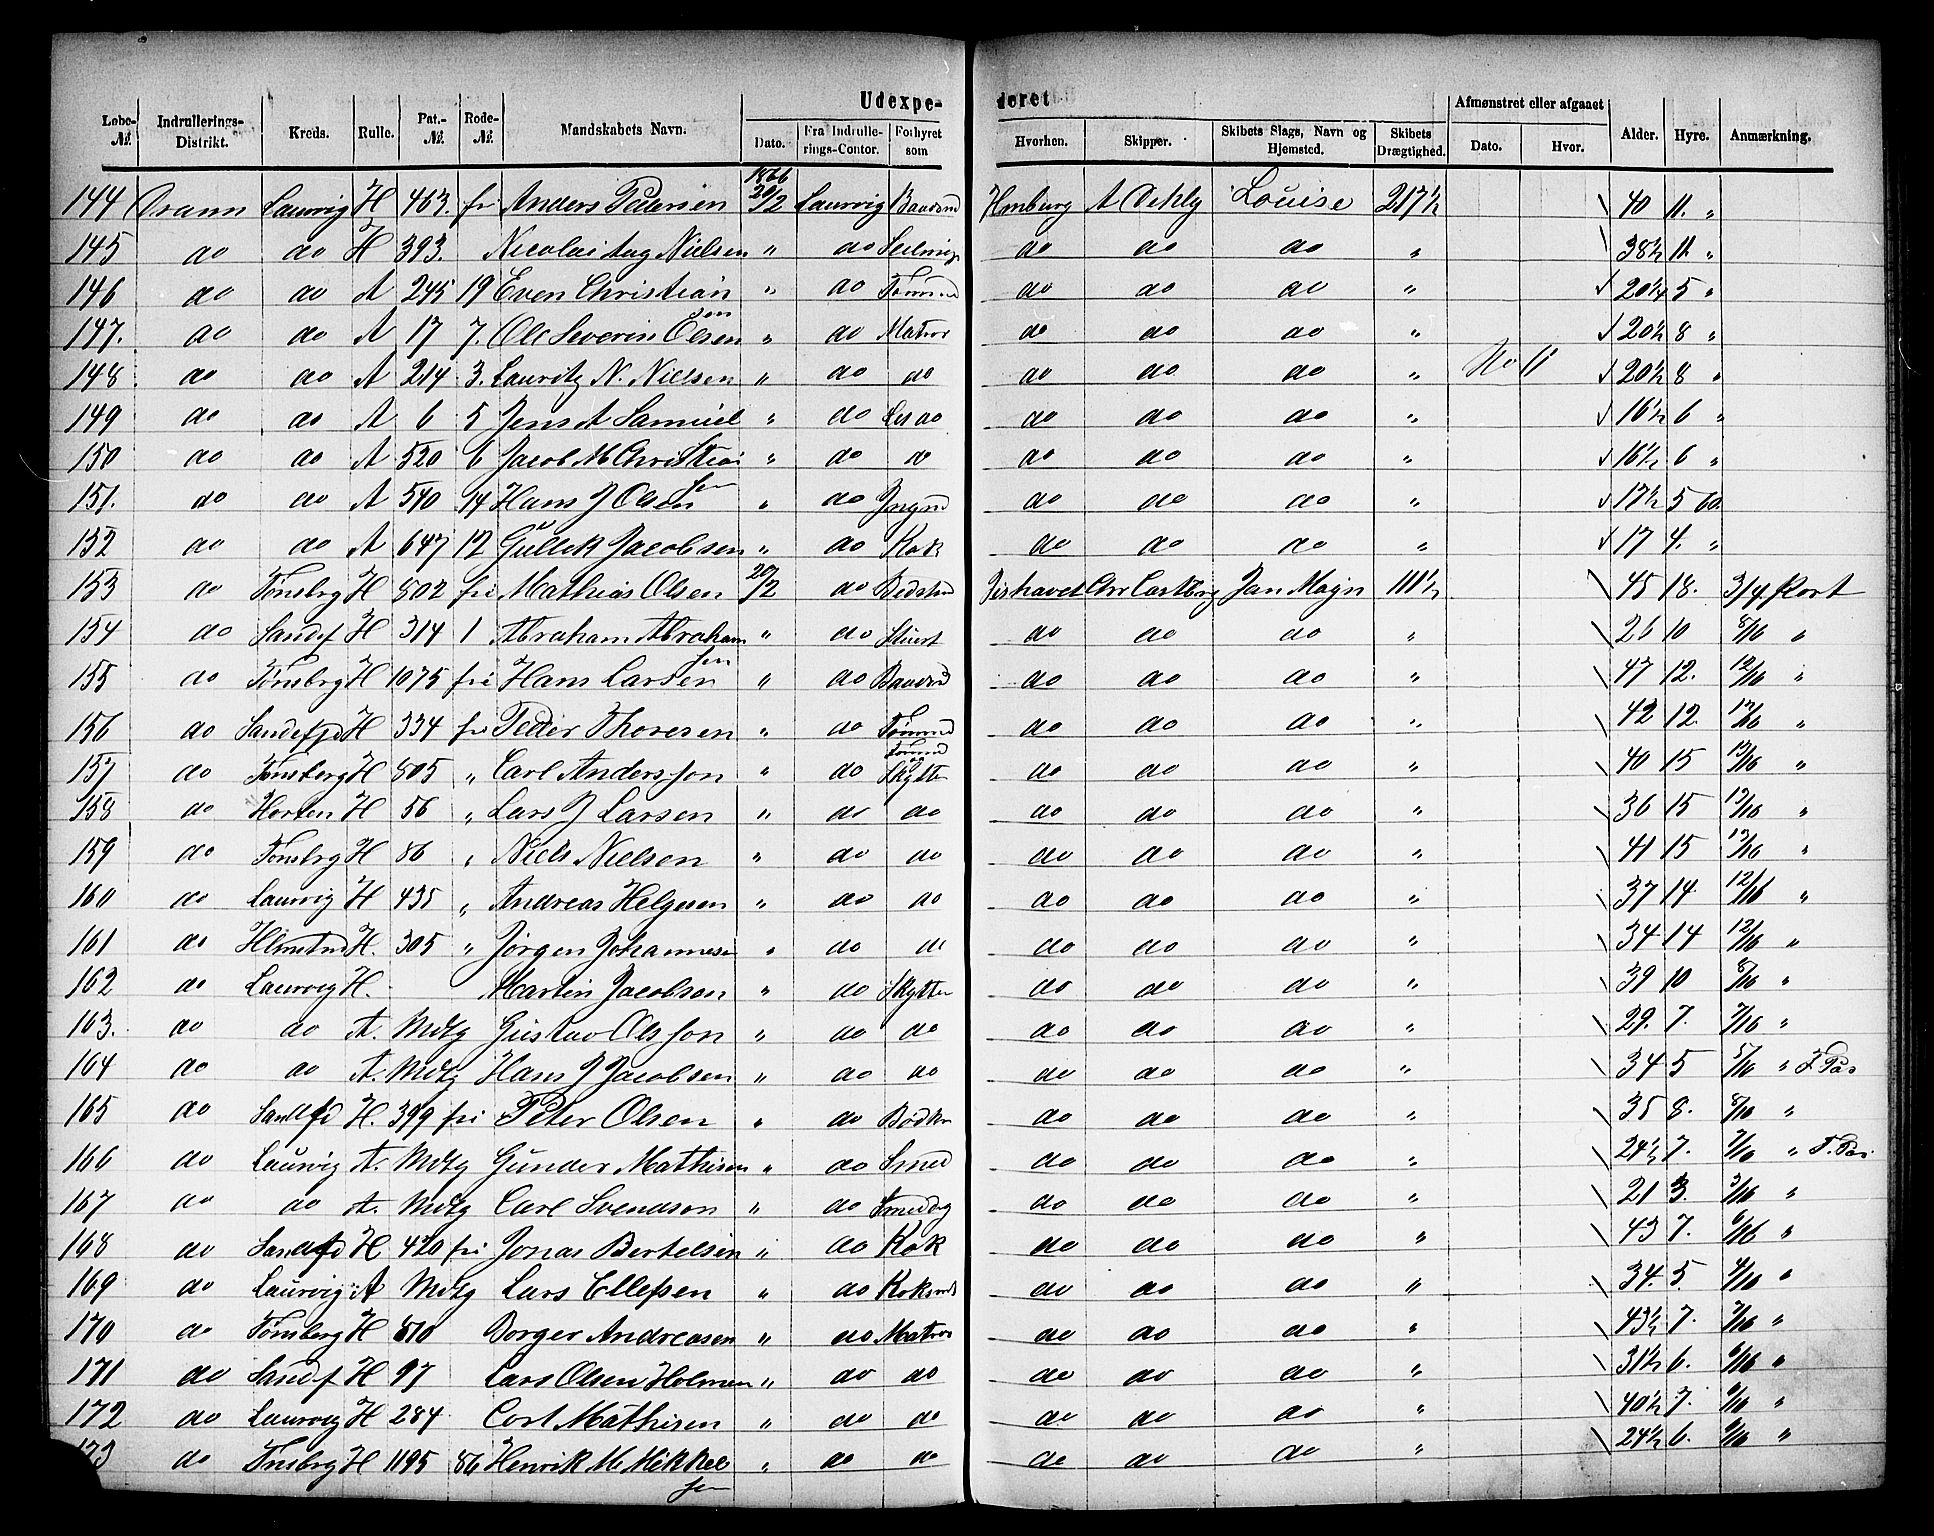 Udexpederet
Løbe-№. Indrullerings-Distrikt. Kreds. Rulle. Pat.-№. Rode-№. Mandskabets Navn. Dato. Fra Indrullerings-Contor. Forhyret som Hvorhen. Skipper. Skibets Slags, Navn og Hjemsted. Skibets Drægtighed. Afmønstret eller afgaaet Dato. Hvor. Alder. Hyre. Anmærkning.
1866
144 Dramn Laurvig H 463. fri Anders Pedersen 20/2 Laurvig Baadsmd Hmburg A Dehly Louise 217½ 40 11. „
145 do do H 393. Nicolai Aug Nielsen „ do do do do „ 38½ 11 „
146 do do A 245 19 Even Christiansen „ do Tømmd do do do „ 20¼ 5 „
147. do do A 17 7. Ole Severin Olsen „ do Matros do do do „ 20½ 8 „
148 do do A 214 3. Lauritz N. Nielsen „ do do do do do „ No 11 20½ 8 „
149 do do A 6 5 Jens A Samuelsen „ do Let do do do do „ 16½ 6 „
150 do do A 520 6 Jacob M Christiansen „ do do do do do „ 16½ 6 „
151. do do A 540 14 Hans J Olsen „ do Jngmd do do do „ 17½ 5 60.
152 do do A 647 12 Gullik Jacobsen „ do Kok do do do „ 17 4. „
153 do Tønsbrg H 802 fri Mathias Olsen 20/2 do Bedstmd Jishavet Chr Castbrg Jan Mayn 111½ 45 18. 3/4 Port
154 do Sandef H 314 1 Abraham Abrahamsen „ do Stuert do do do „ 26 10 8/16 „
155 do Tønsbrg H 1075 fri Hans Larsen „ do Baadsmd do do do „ 47 12. 12/16 „
156 do Sandefjd H 334 fri Peder Thoresen „ do Tømmd do do do „ 42 12. 12/16 „
157 do Tønsberg H 805 „ Carl Andersson „ do Tømmd og Skytter do do do „ 40 15 13/16 „
158 do Horten H 56 „ Lars J Larsen „ do do do do do „ 36 15 13/16 „
159 do Tønsbrg H 86 „ Niels Nielsen „ do do do do do „ 41 15 13/16 „
160 do Laurvig H 435 „ Andreas Helgesen „ do do do do do „ 37 14. 12/16 „
161 do Hlmstrnd H. 305 „ Jørgen Johannesen „ do do do do do „ 34 14 12/16 „
162 do Laurvig H. Martin Jacobson „ do Skytter do do do „ 39 10 8/16 „
163. do do A. Mdtg Gustav Olsson „ do do do do do „ 29. 7. 7/16 „
164 do do A. Mdtg Hans J Jacobsen „ do do do do do „ 34 5 5/16 „ F. Pas
165 do Sandefd H. 399 fri Peter Olsen „ do Bødker do do do „ 35 8. 8/16 „
166 do Laurvig A. Mdtg Gunder Mathisen „ do Smed do do do „ 24½ 7. 7/16 „ F. Pas.
167 do do A. Mdtg Carl Svendson „ do Smeddg do do do „ 21 3. 3/16 „
168 do Sandefd H 420 fri Jonas Bertelsen „ do Kok do do do „ 43 7. 6/16 „
169 do Laurvig A Mdtg Lars Ellefsen „ do Koksmt do do do „ 34. 5. 4/16 „
170 do Tønsberg H 810 Borger Andreasen „ do Matros do do do „ 43½ 7. 7/16 „
171 do Sandf H 97 Lars Olsen Holmen „ do do do do do „ 31½ 6. 6/16 „
172 do Laurvig H 284 Cort Mathisen „ do do do do do „ 40½ 7. 6/16 „
173 do Tnsbrg H 1195 86 Henrik M. Mikkelsen „ do do do do do „ 24½ 6. 6/16 „